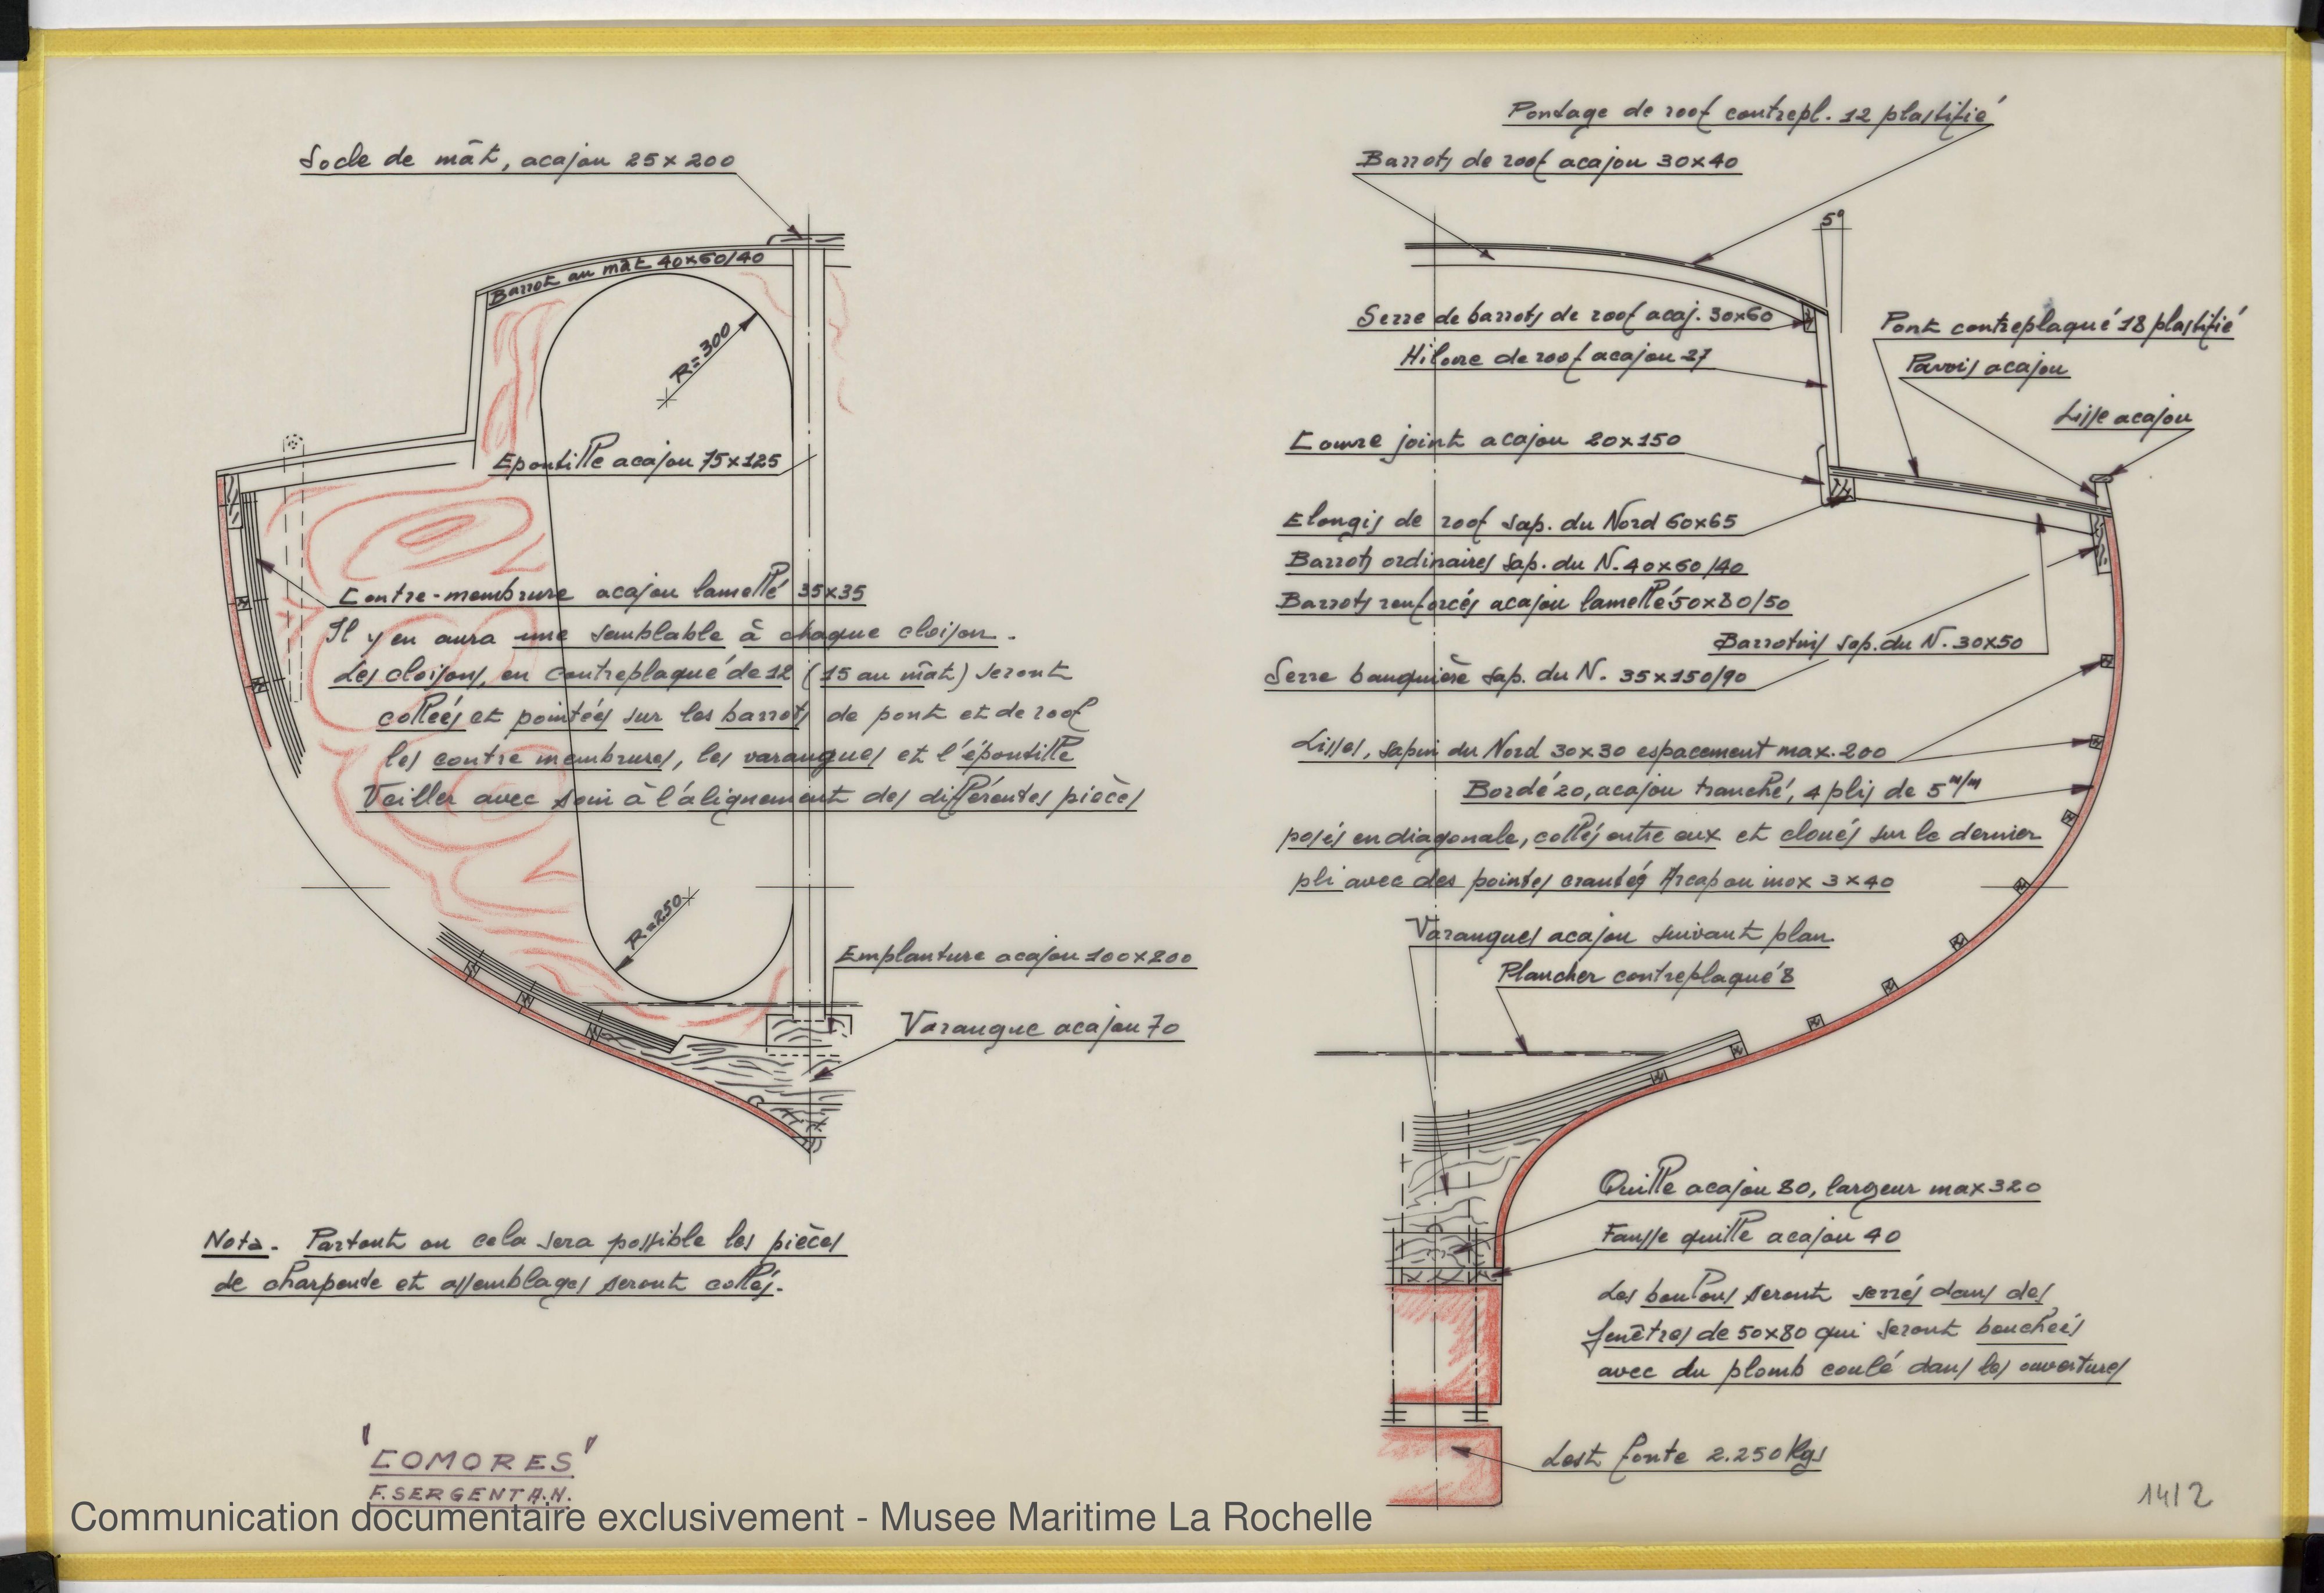 Socle de mât, acajou 25x200
Barrot au mât 40x60/40
R=300
Epontille acajou 75x125
Contre-membrure acajou lamellé 35x35
Il y en aura une semblable à chaque cloison.
Les cloisons, en contreplaqué de 12 (15 au mât) seront
collées et pointées sur les barrots de pont et de roof
les contre membrures, les varangues et l'épontille
Veiller avec soin à l'alignement des différentes pièces
R=250
Emplanture acajou 100x200
Varangue acajou 70
Nota. Partout ou cela sera possible les pièces
de charpente et assemblages seront collés.
"COMORES"
F. SERGENT A.N.
Pontage de roof contrepl. 12 plastifié
Barrots de roof acajou 30x40
5°
Serre de barrots de roof acaj. 30x60
Hiloire de roof acajou 27
Pont contreplaqué 18 plastifié
Pavois acajou
Lisse acajou
Couvre joint acajou 20x150
Elongis de roof sap. du Nord 60x65
Barrots ordinaires sap. du N. 40x60/40
Barrots renforcés acajou lamellé 50x80/50
Barrotins sap. du N. 30x50
Serre bauquière sap. du N. 35x150/90
Lisses, sapin du Nord 30x30 espacement max. 200
Bordé 20, acajou tranché, 4 plis de 5 m/m
posés en diagonale, collés entre eux et cloués sur le dernier
pli avec des pointes crantées Arcap ou inox 3x40
Varangues acajou suivant plan
Plancher contreplaqué 8
Quille acajou 80, largeur max 320
Fausse quille acajou 40
Les boulons seront serrés dans des
fenêtres de 50x80 qui seront bouchées
avec du plomb coulé dans les ouvertures
Lest fonte 2.250 Kgs
14/2
Communication documentaire exclusivement - Musee Maritime La Rochelle